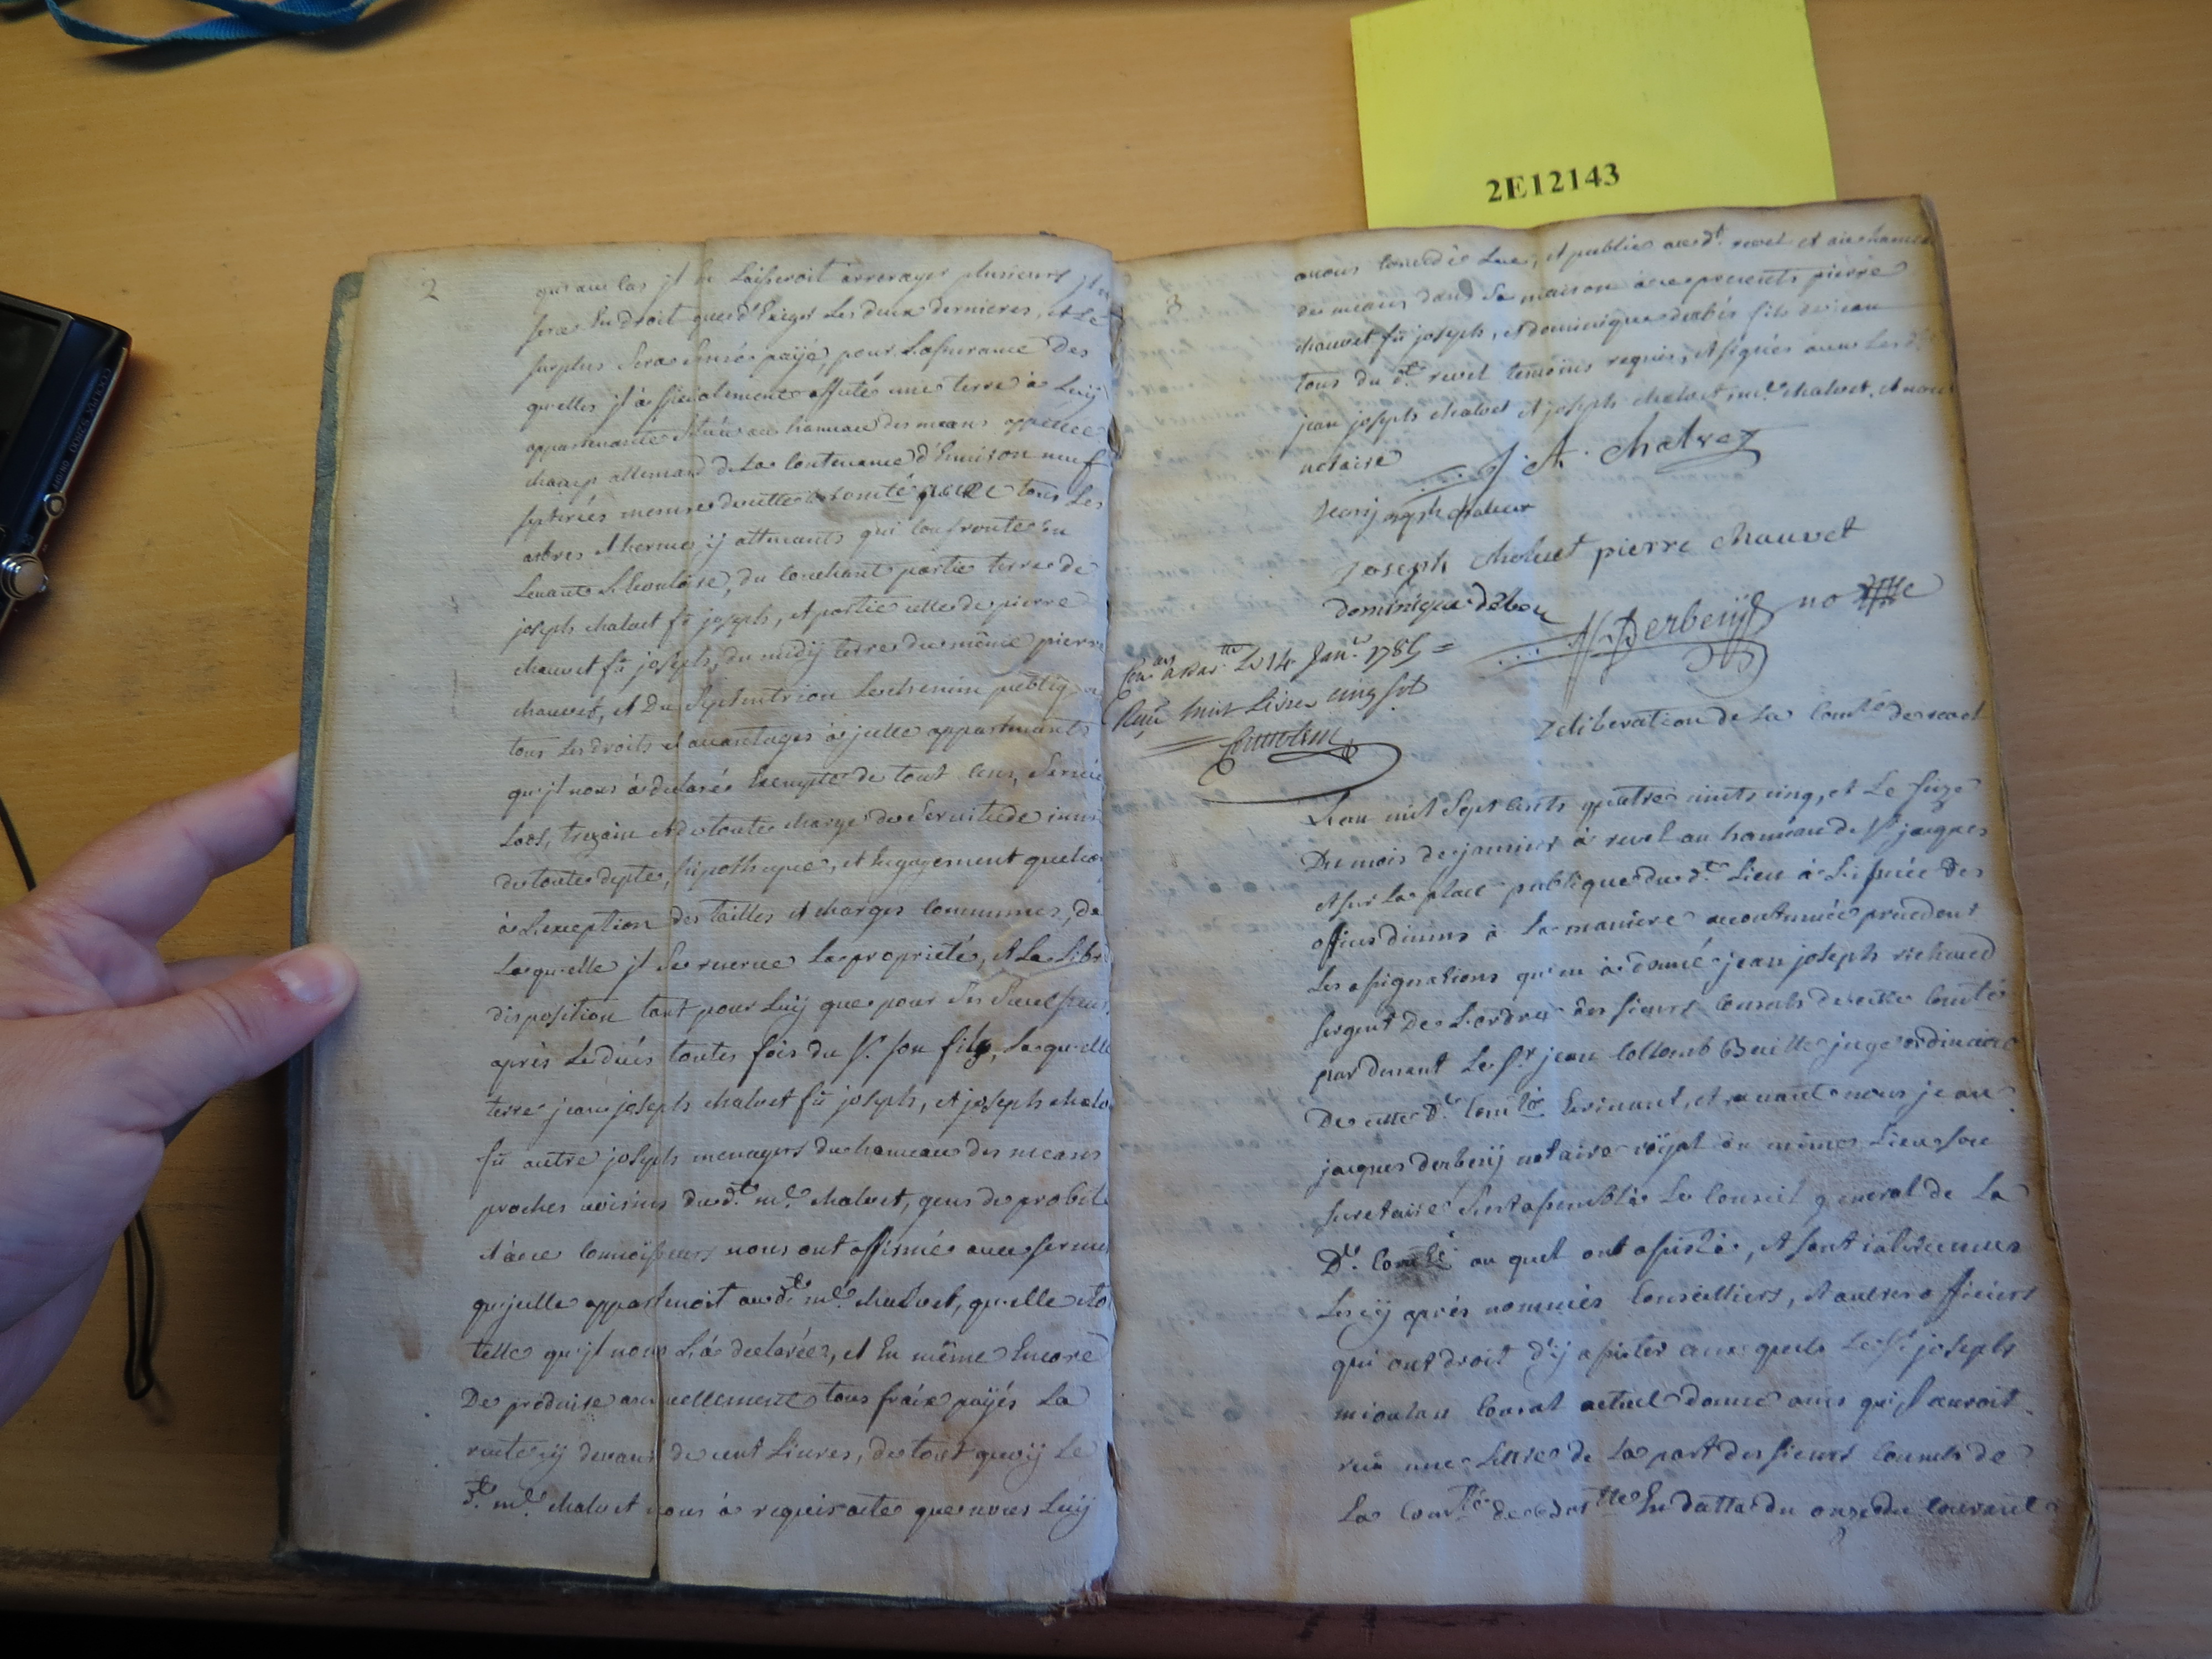 2E12143
2
qu'au cas jl en Laisseroit arrerager plusieurs jl n
sera En droit que d'Exiger Les deux dernieres, et Le
surplus Sera Censé payé, pour L'assurance Des
quelles jl à specialement affecté une terre à Luy
appartenante Située au hameau des means appellée
champ allemand de La Contenance d'Environ neuf
septiriés mesure de cette comté avec tous Les
arbres et hermes ÿ attenants qui confronte du
Levant du couchant partie terre de
joseph chalvet fû joseph, et partie celle de pierre
chauvet fû joseph, du midÿ terre du même pierre
chauvet, et Du Septentrion Le chemin publiq
tous Les droits et avantages à jcelle appartenants
qu'jl nous à declarée Exempte de tout Cens, Service
Lods, trezain et de toute charge de Servitude
de toute depte, hipotheque, et Engagement quelco
à L'exception des tailles et charges Communes, de
Laquelle jl Se reserve La proprieté, et La Libr
disposition tant pour Luÿ que pour Ses Successeurs
après Le décés toutes fois du Sr. son fils, Laquelle
terre jean joseph chalvet fû joseph, et joseph chalv
fû autre joseph menagers du hameau des means
proches voisins du dt. me. chalvet, gens de probité
et à ce Connoisseurs nous ont affirmé avec serment
qu'jcelle appartenoit au dt. me. chalvet, qu'elle etoi
telle qu'jl nous L'à declarée, et En même Encore
De produire annuellement tous fraix payés La
rente cÿ devant de cent Livres, de tout quoÿ Le
dt. me. chalvet nous à requis acte que nous Luÿ
3
avons Concedé Lue, et publié au dt. revel et au hameau
des means dans Sa maison à ce presents pierre
chauvet fû joseph, et dominique derbés fils de jean
tous du dt. revel temoins requis, et signés avec Les dt
jean joseph chalvet et joseph chalvet, me. chalvet, et nous
notaire
J. A. chalvet
Jean joseph chalvet
joseph chalvet pierre chauvet
dominique
Derbesÿ no
Con. a Bar.tte Le 14 Janr. 1785 =
Reçu huit Livres cinq sols
Deliberation de La Comté de revel
L'an mil Sept Cents quatre vints cinq, et Le seize
Du mois de janvier à revel au hameau de St. jacques
et sur La place publique du dt. Lieu à L'issuée des
offices divins à La maniere accoutumée precedent
Les assignations qu'en à donné jean joseph richaud
sergent De L'ordre des sieurs Consuls de cette Comté
par devant Le Sr. jean Collomb Baille juge ordinaire
De cette de. Comté Ecrivant, et avant nous jean
jacques derbesÿ notaire roÿal du même Lieu son
secretaire S'est assemblé Le Conseil general de La
De. Comté au quel ont assisté, et sont intervenus
Les cÿ après nommés Conseilliers, et autres officiers
qui ont droit d'ÿ assister aux quels Le Sr. joseph
mioulan Consul actuel donne avis qu'jl auroit
reçu une Lettre de La part des sieurs Consuls de
La Comté de Bar.tte En datte du onze du courant